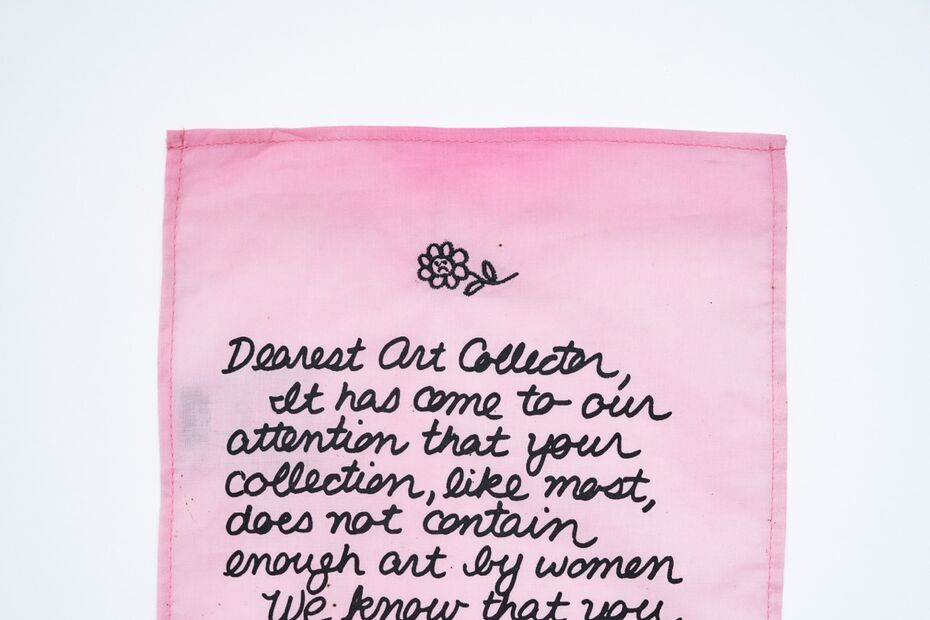 Dearest Art Collector,
It has come to our
attention that your
collection, like most,
does not contain
enough art by women
We know that you